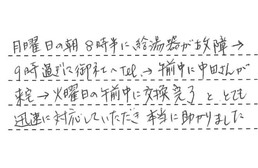 月曜日の朝8時半に給湯器が故障→
9時過ぎに御社へTel→午前中に中田さんが
来宅→火曜日の午前中に交換完了と とても
迅速に対応していただき本当に助かりました